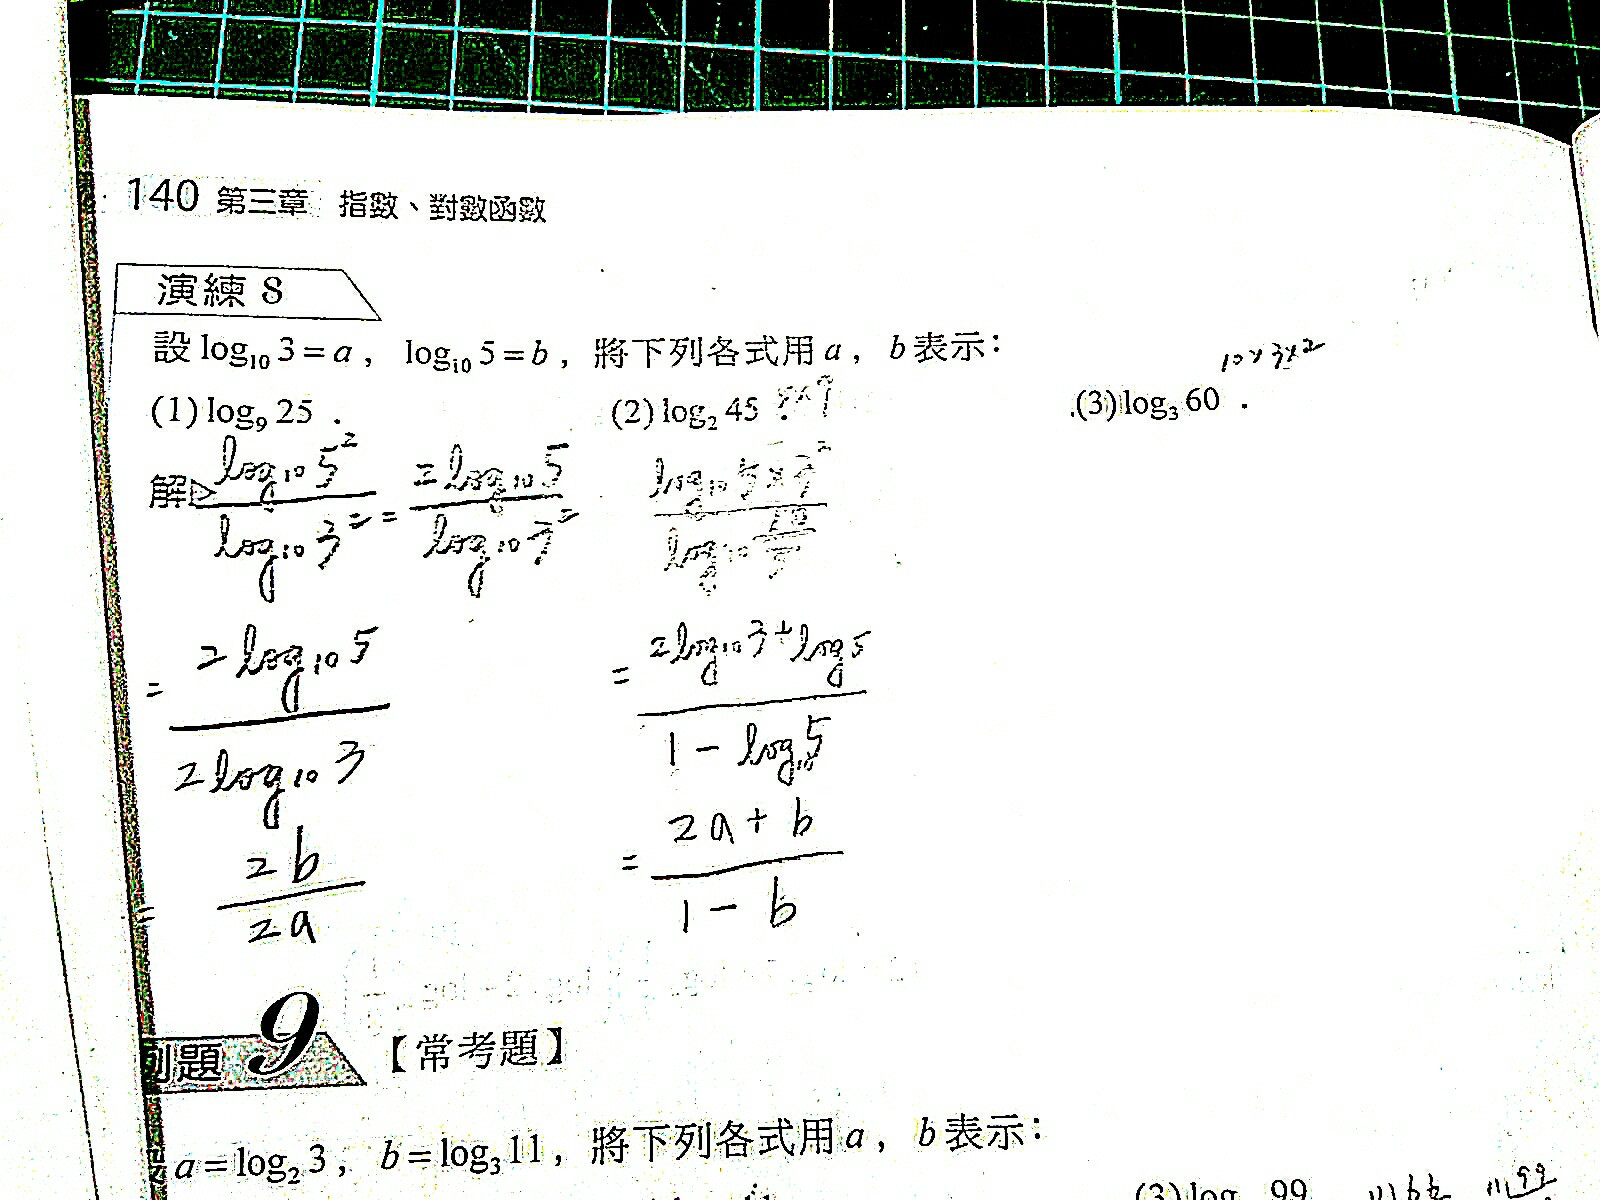 140 第三章 指數、對數函數
演練 8
設 log₁₀ 3 = a, log₁₀ 5 = b, 將下列各式用 a, b 表示:
10×3×2
(1) log₉ 25 .
(2) log₂ 45 . 5×9
(3) log₃ 60 .
解 log₁₀ 5² / log₁₀ 3² = 2 log₁₀ 5 / log₁₀ 3²
= 2 log₁₀ 5 / 2 log₁₀ 3
= 2b / 2a
log₁₀ 5×3² / log₁₀ 10/5
= 2log₁₀ 3 + log 5 / 1 - log₁₀ 5
= 2a + b / 1 - b
例題 9 【常考題】
a = log₂ 3, b = log₃ 11, 將下列各式用 a, b 表示:
(3) log 99